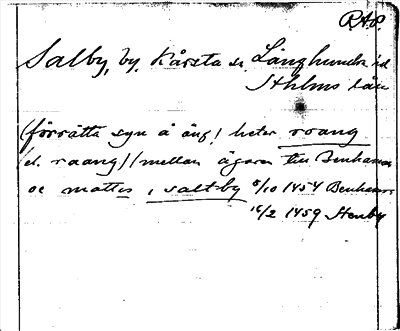 RAP.
Salby, by, Kårsta sn Långhundra hd
Sthlms län
(förrätta syn å äng / heter roang
(el. raang) / (mellan ägaren till Benhamar
oc mattes i saltby 8/10 1454 Benhamar
16/2 1459 Stenby